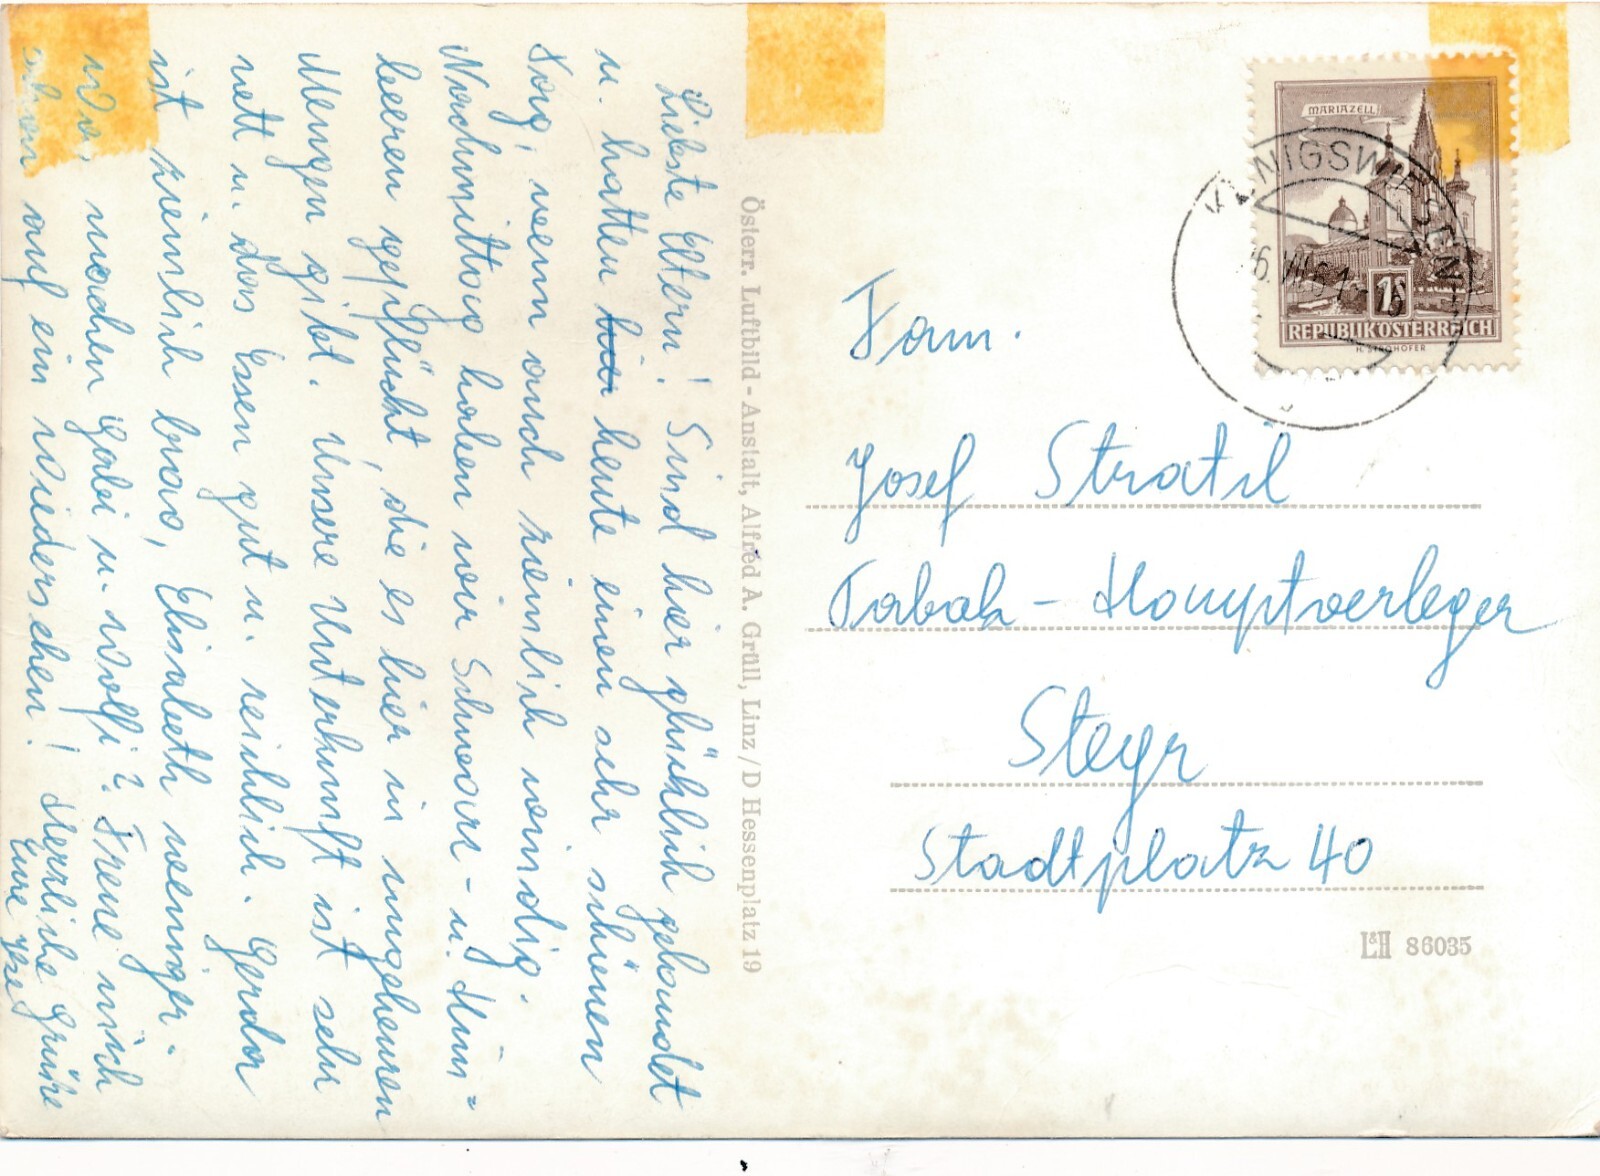 Liebste Eltern! Sind hier glücklich gelandet
u. hatten hier heute einen sehr schönen
Tag, wenn auch ziemlich windig.
Nachmittag haben wir Schwarz- u. Him=
beeren gepflückt, die es hier in ungeheuren
Mengen gibt. Unsere Unterkunft ist sehr
nett u. das Essen gut u. reichlich. Gerda
ist ziemlich brav, Elisabeth weniger.
machen Gabi u. Wolfi? Freue mich
schon auf ein Wiedersehen! Herzliche Grüße
Eure Ilse
Österr. Luftbild - Anstalt, Alfred A. Grüll, Linz / D Hessenplatz 19
MARIAZELL
1S
REPUBLIK ÖSTERREICH
H. STROHOFER
KÖNIGSWIESEN
Fam.
Josef Stratil
Tabak - Hauptverleger
Steyr
Stadtplatz 40
L&H 86035